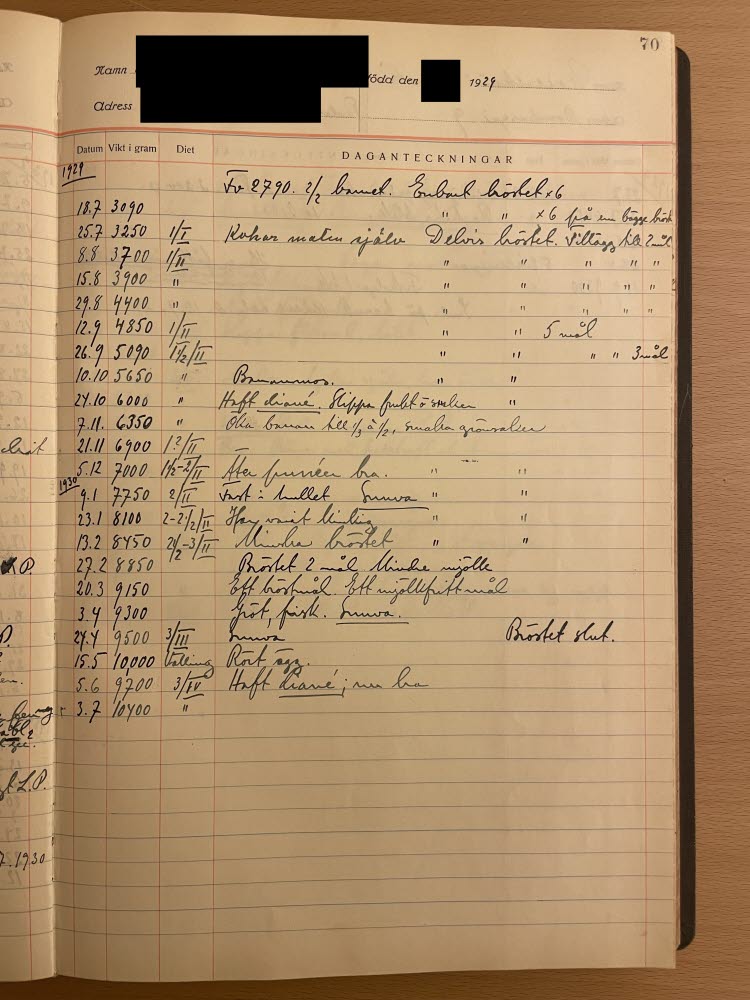 70
Namn
född den 1929
Adress
Datum Vikt i gram Diet DAGANTECKNINGAR
1929
Fv 2790. 2/2 barnet. Enbart bröstet ×6
18.7 3090 " " ×6 från en bägge bröst
25.7 3250 1/I Kokar maten själv Delvis bröstet. Tillägg till 2 mål
8.8 3700 1/II " " " " "
15.8 3900 " " " " " "
29.8 4400 " " " " " "
12.9 4850 1/II " " 5 mål
26.9 5090 1½/II " " " " 3 mål
10.10 5650 " Bananmos. " "
24.10 6000 " Haft diarré. Slippa frukt ö "
7.11. 6350 " Öka banan till 1/3 à 1/2, smaka grönsaker
21.11 6900 1?/II
5.12 7000 1½-2/II Äter puréen bra. " "
1930
9.1 7750 2/II Fast i hullet Snuva " "
23.1 8100 2-2½/II Har varit " "
13.2 8450 2½-3/II Mindre bröstet " "
27.2 8850 Bröstet 2 mål Mindre mjölk
20.3 9150 Ett bröstmål. Ett mjölkfritt mål
3.4 9300 Gröt, fisk. Snuva.
24.4 9500 3/III Snuva Bröstet slut.
15.5 10,000 Välling Rört ägg.
5.6 9700 3/IV Haft diarré; nu bra
3.7 10400 "
L.P.
7.1930